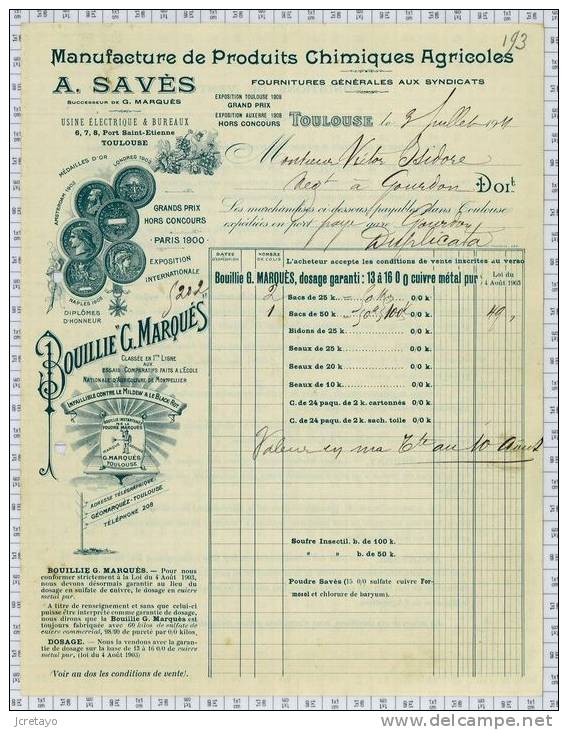 193
Manufacture de Produits Chimiques Agricoles
A. SAVÈS
SUCCESSEUR DE G. MARQUÈS
FOURNITURES GÉNÉRALES AUX SYNDICATS
USINE ÉLECTRIQUE & BUREAUX
6, 7, 8, Port Saint-Etienne
TOULOUSE
EXPOSITION TOULOUSE 1908
GRAND PRIX
EXPOSITION AUXERRE 1908
HORS CONCOURS
TOULOUSE le 3 Juillet 1911
Monsieur Victor Isidore
Negt à Gourdon Doit
Les marchandises ci-dessous, payables dans Toulouse
expédiées en port payé gare Gourdon
Duplicata
MÉDAILLES D'OR
LONDRES 1902
AMSTERDAM 1902
NAPLES 1902
DIPLÔMES
D'HONNEUR
GRANDS PRIX
HORS CONCOURS
PARIS 1900
EXPOSITION
INTERNATIONALE
5202
BOUILLIE "G. MARQUÈS"
CLASSÉE EN 1re LIGNE
AUX
ESSAIS COMPARATIFS FAITS A L'ECOLE
NATIONALE D'AGRICULTURE DE MONTPELLIER
INFAILLIBLE CONTRE LE MILDEW & LE BLACK ROT
BOUILLIE INSTANTANÉE
POUDRE MARQUÈS
G. MARQUÈS
TOULOUSE
ADRESSE TÉLÉGRAPHIQUE:
GÉOMARQUEZ-TOULOUSE
TÉLÉPHONE 208
DATES
D'EXPÉDITION
NOMBRE
DE COLIS
L'acheteur accepte les conditions de vente inscrites au verso
Bouillie G. MARQUÈS, dosage garanti : 13 à 16 0/0 cuivre métal pur
Loi du
4 Août 1903
2 Sacs de 25 k. 0/0 k.
1 Sacs de 50 k. 0/0 k. 49
Bidons de 25 k. 0/0 k.
Seaux de 25 k. 0/0 k.
Seaux de 20 k. 0/0 k.
Seaux de 10 k. 0/0 k.
C. de 24 paqu. de 2 k. cartonnés 0/0 k.
C. de 24 paqu. de 2 k. sach. toile 0/0 k.
Valeur en ma Tte au 10 Août
Soufre Insectil. b. de 100 k.
" " b. de 50 k.
Poudre Savès (15 0/0 sulfate cuivre Formosol et chlorure de baryum).
BOUILLIE G. MARQUÈS. — Pour nous
conformer strictement à la Loi du 4 Août 1903,
nous devons désormais garantir au lieu du
dosage en sulfate de cuivre, le dosage en cuivre
métal pur.
A titre de renseignement et sans que celui-ci
puisse être interprété comme garantie de dosage,
nous dirons que la Bouillie G. Marquès est
toujours fabriquée avec 60 kilos de sulfate de
cuivre commercial, 98.99 de pureté par 0/0 kilos.
DOSAGE. — Nous la vendons avec la garantie
de dosage sur la base de 13 à 16 0/0 de cuivre
métal pur, (loi du 4 Août 1903)
(Voir au dos les conditions de vente).
jcretayo
delcampe.net